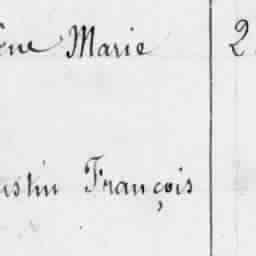 ène Marie 2
ustin François